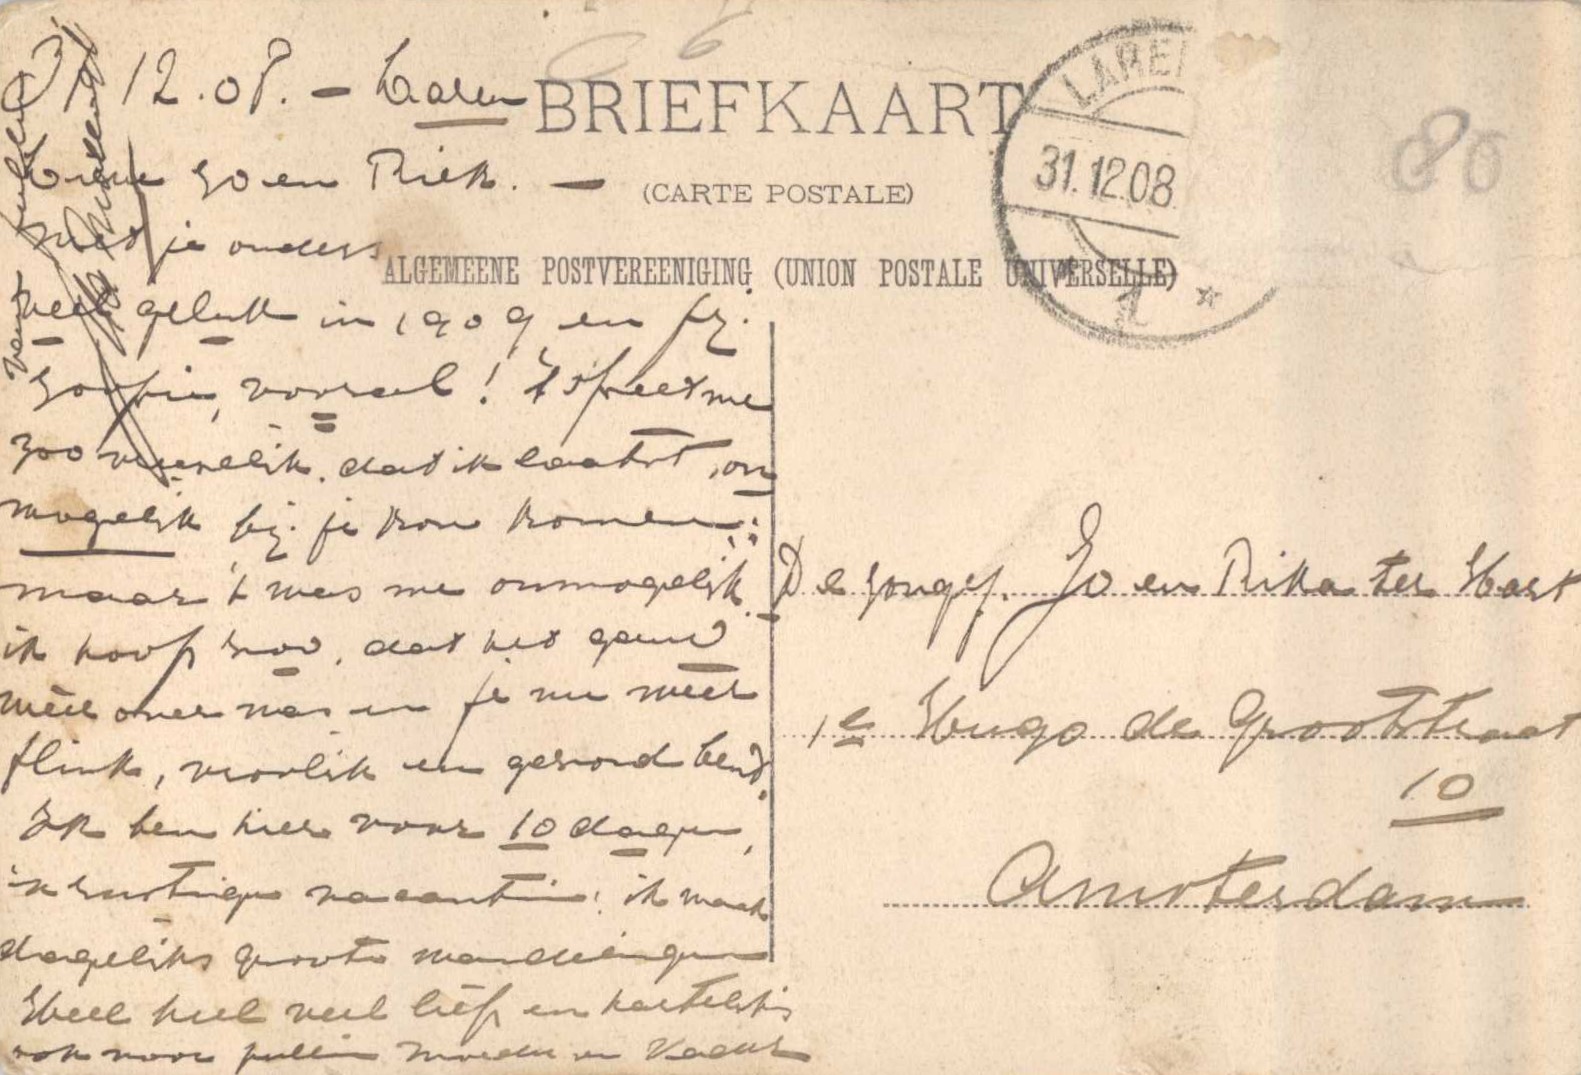 31.12.08. – Laren
BRIEFKAART
(CARTE POSTALE)
ALGEMEENE POSTVEREENIGING (UNION POSTALE UNIVERSELLE)
LAREN
31.12.08
Lieve Jo en Riek. –
Met je ouders
veel geluk in 1909 en jij.
vooral! 't spreet me
zoo vreeselijk, dat ik laatst on
mogelijk bij je kon komen:
maar 't was me onmogelijk.
ik hoop zoo, dat het gauw
weer over was en je nu weer
flink, vroolijk en gezond bent.
Ik ben hier voor 10 dagen,
in rustige vacantie: ik maak
dagelijks groote wandelingen
Heel heel veel liefs en hartelijks
ook voor jullie moeder en Vader
van
De Jongej. Jo en Rika ter Horst
1e Hugo de Grootstraat
10
Amsterdam